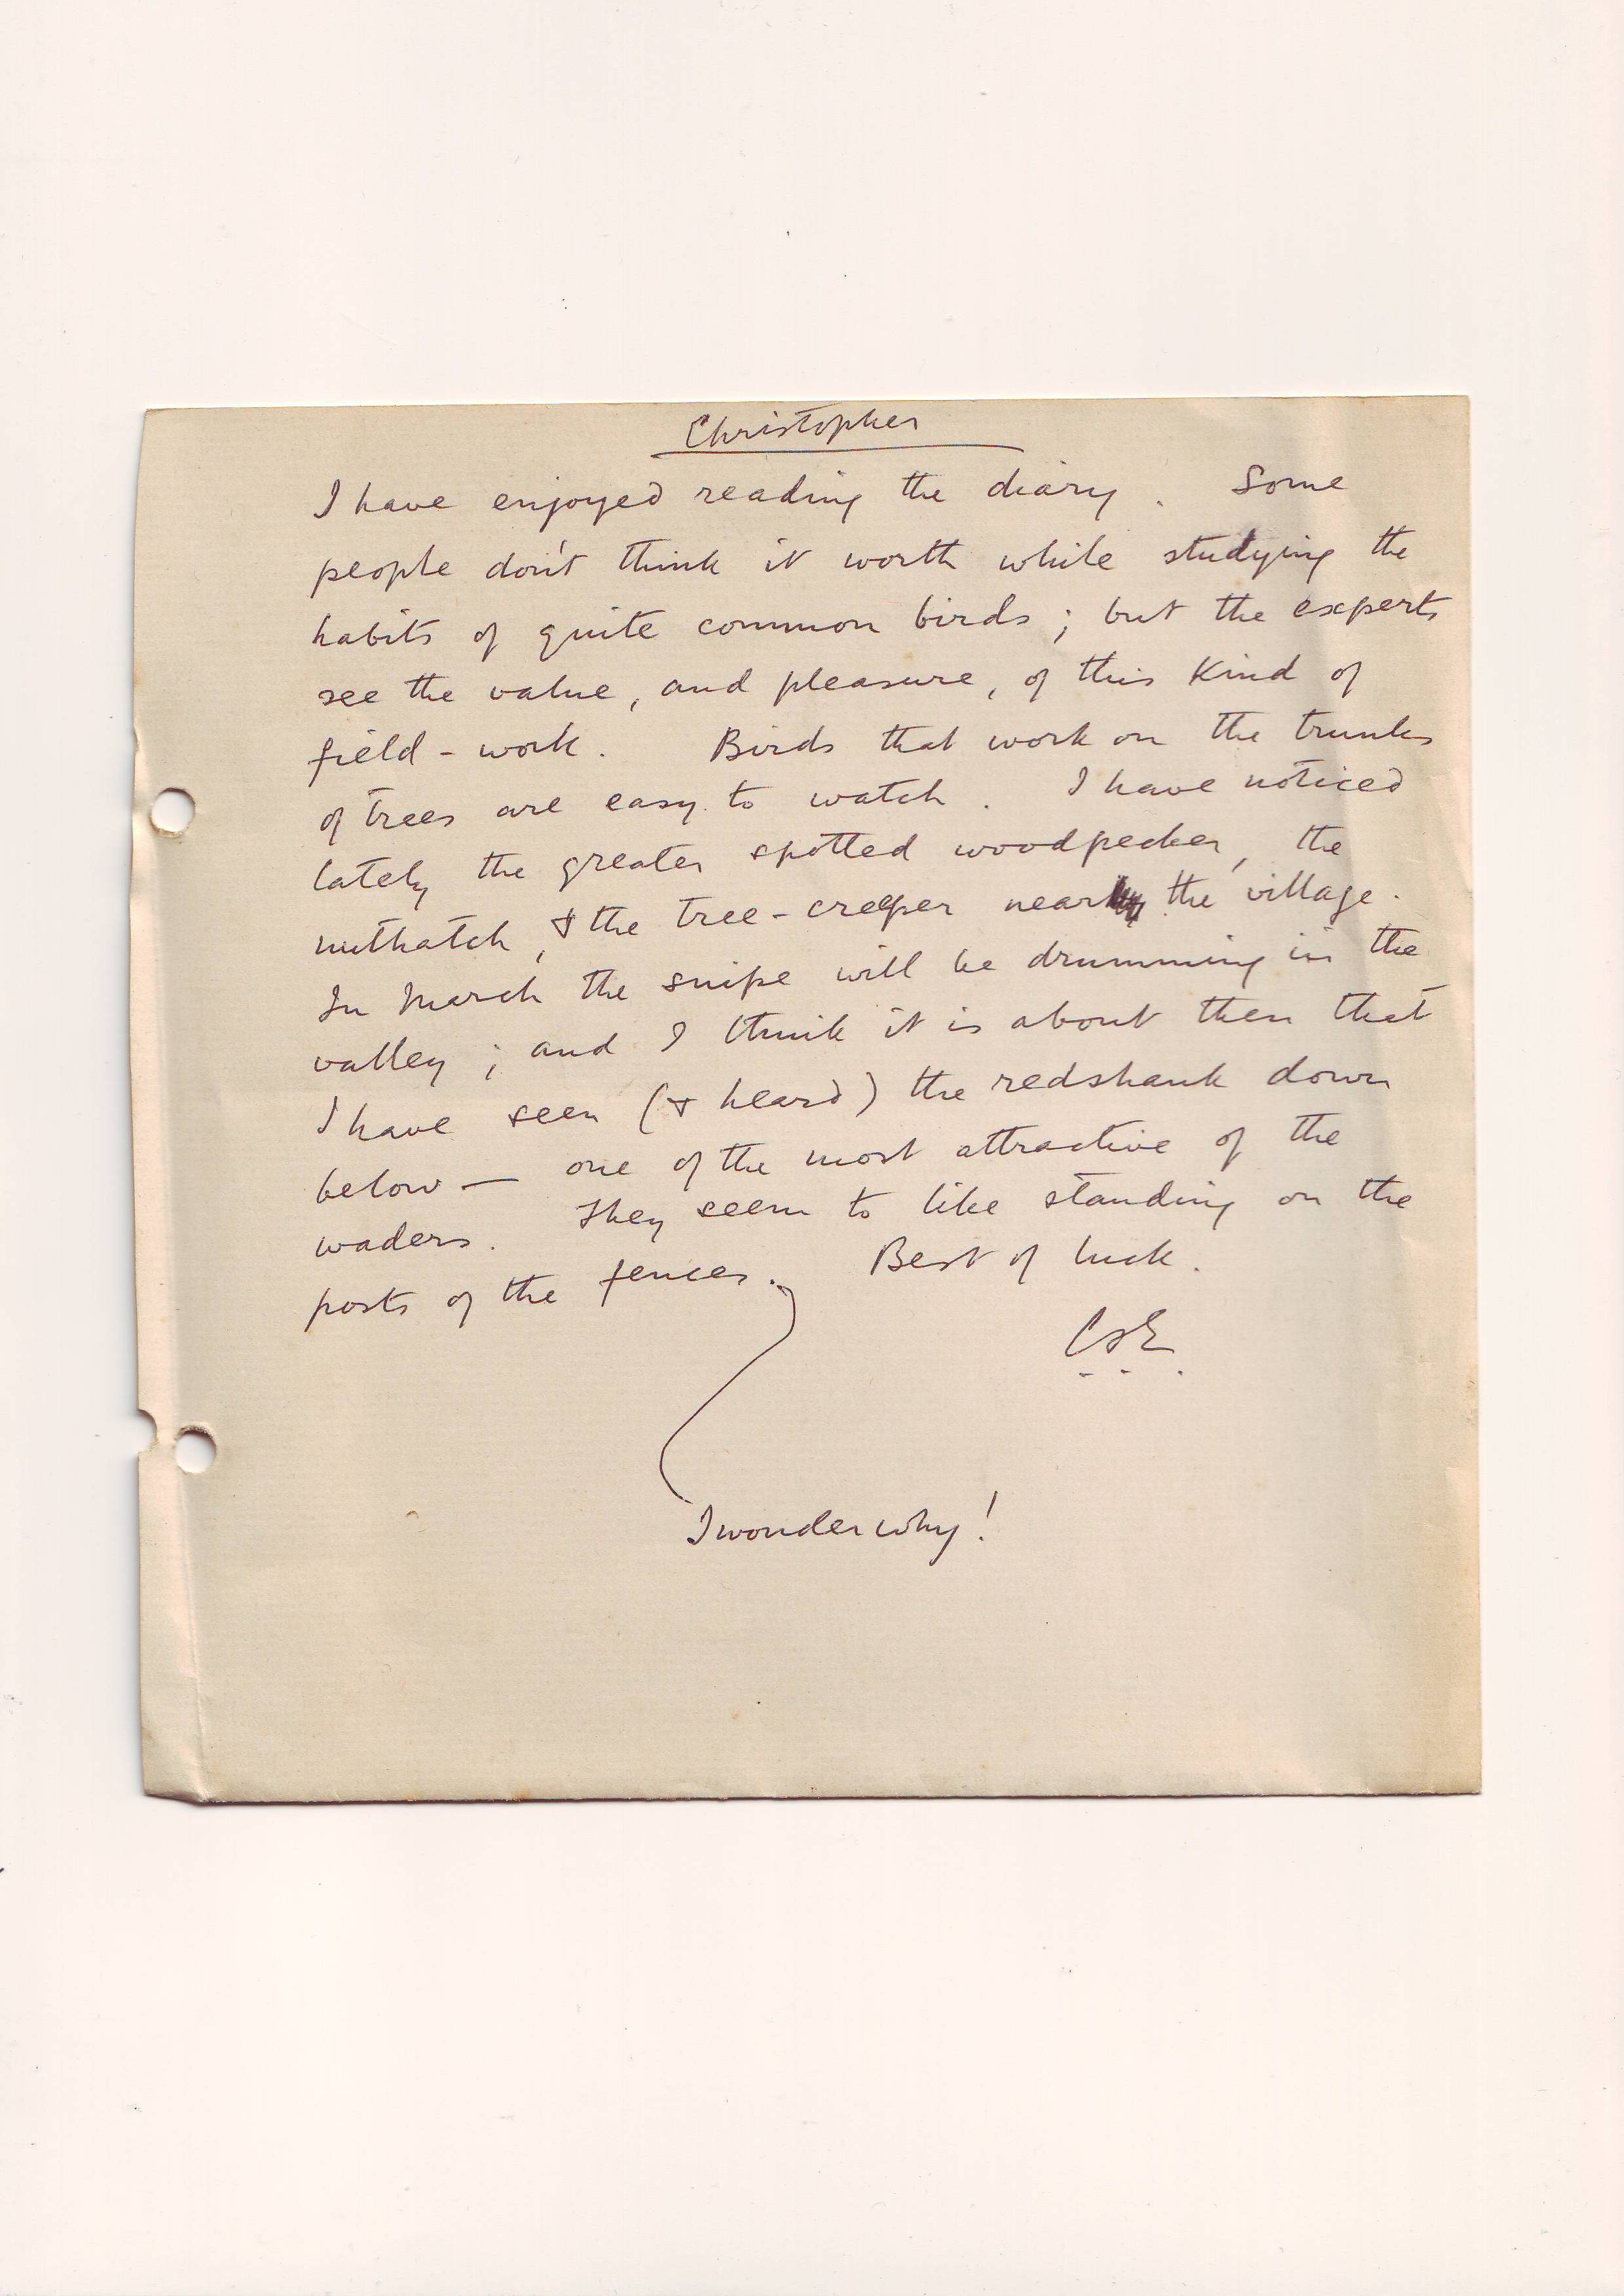 Christopher
I have enjoyed reading the diary. Some
people don't think it worth while studying the
habits of quite common birds; but the experts
see the value, and pleasure, of this kind of
field-work. Birds that work on the trunks
of trees are easy to watch. I have noticed
lately the greater spotted woodpecker, the
nuthatch, & the tree-creeper near the village.
In March the snipe will be drumming in the
valley; and I think it is about then that
I have seen (& heard) the redshank down
below — one of the most attractive of the
waders. They seem to like standing on the
posts of the fences. Best of luck.
I wonder why!